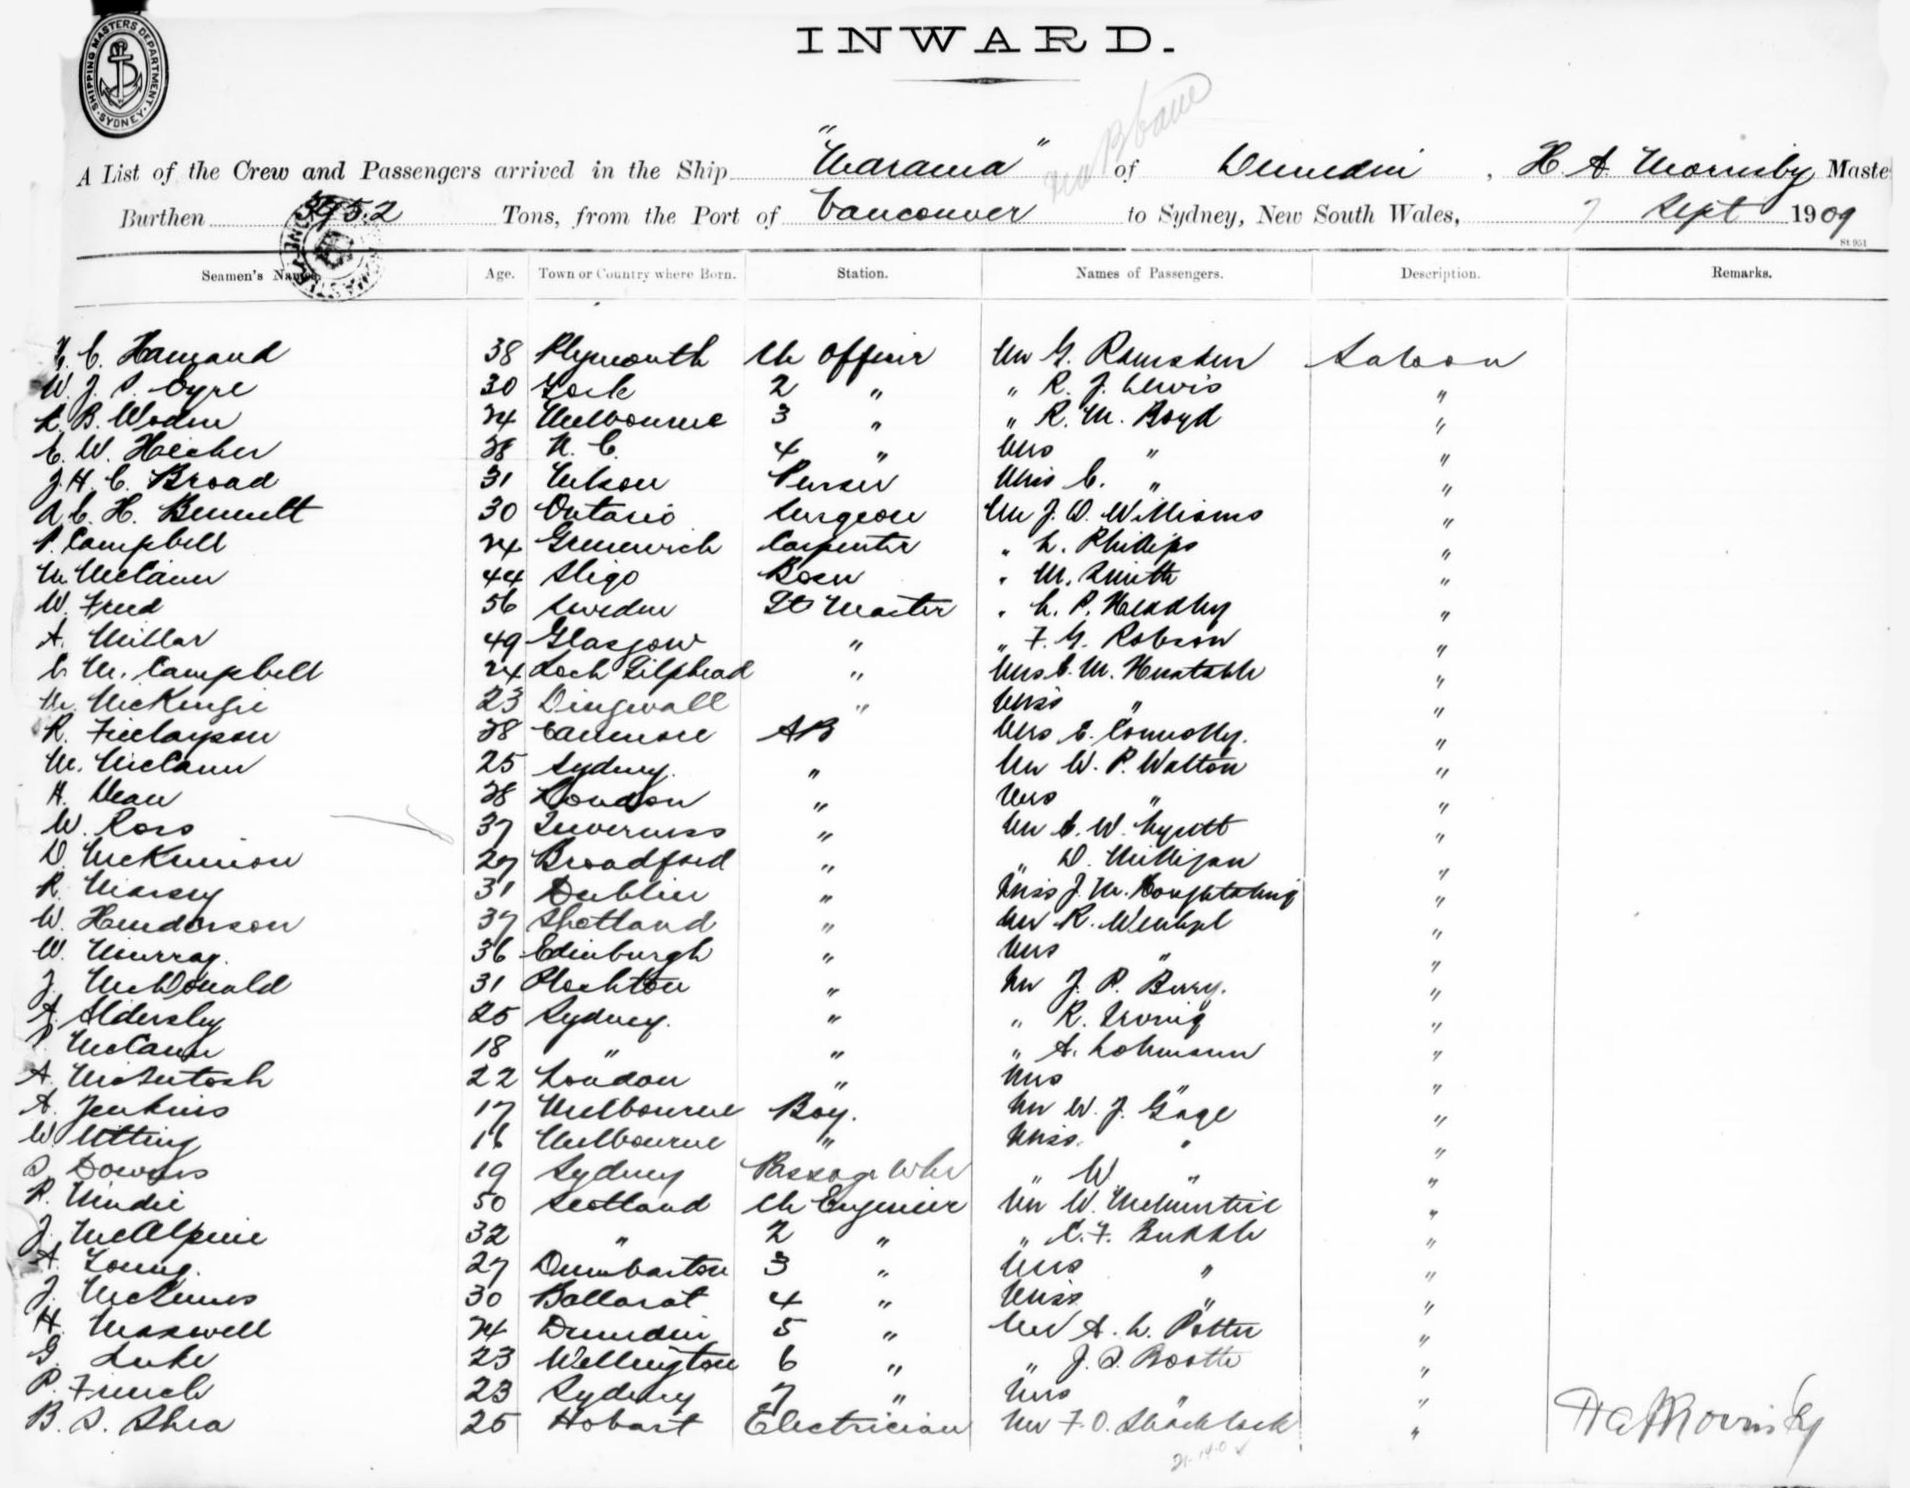 SHIPPING MASTERS DEPARTMENT
SYDNEY
INWARD.
A List of the Crew and Passengers arrived in the Ship "Marama" of Dunedin, H. A. Mornisby Maste
Burthen 3952 Tons, from the Port of Vancouver to Sydney, New South Wales, 7 Sept 1909
St 951
Seamen's Names. Age. Town or Country where Born. Station. Names of Passengers. Description. Remarks.
C. Hamand 38 Plymouth Ch Officer Mr G. Ramsden Saloon
W. J. S. Eyre 30 York 2 " " R. J. Lewis "
B. Woden 24 Melbourne 3 " " R. M. Boyd "
E. W. 28 N. C. 4 " Mrs " "
J. H. C. Broad 31 Nelson Purser Miss C. " "
A. C. H. Bennett 30 Ontario Surgeon Mr J. D. Williams "
P. Campbell 24 Greenwich Carpenter " L. Phillips "
M. McCann 44 Sligo Bosn " M. Smith "
W. Freed 56 Sweden Qt Master " L. P. Headley "
A. Millar 49 Glasgow " " F. G. Robson "
C. M. Campbell 24 Loch Gilphead " Mrs C. M. "
M. McKenzie 23 Dingwall " Miss " "
R. Finlayson 28 AB Mrs E. Connolly. "
M. McCann 25 Sydney. " Mr W. P. Walton "
H. Dean 28 London " Mrs " "
W. Ross 37 Inverness " Mr C. W. "
D. McKinnon 27 Broadford " " D. Milligan "
R. Marsey 31 Dublin " Miss J. M. Houghtaling "
W. Henderson 37 Shetland " Mr R. "
W. Murray. 36 Edinburgh " Mrs " "
J. McDonald 31 Plockton " Mr J. P. Berry. "
A. Aldersley 25 Sydney. " " R. Irving "
P. McCann 18 " " " A. Lohmann "
A. McIntosh 22 London " Mrs " "
A. Jenkins 17 Melbourne Boy. Mr W. J. Gage "
W. Utting 16 Melbourne " Miss " "
S. Downes 19 Sydney Passage Wkr " W " "
R. Mudie 50 Scotland Ch Engineer Mr W. "
J. McAlpine 32 " 2 " " C. F. "
A. Young. 27 Dumbarton 3 " Mrs " "
J. McInnes 30 Ballarat 4 " Miss " "
H. Maxwell 24 Dunedin 5 " Mr A. L. Potter "
G. Luke 23 Wellington 6 " " J. S. Booth "
P. French 23 Sydney 7 " Mrs " "
B. S. Shea 25 Hobart Electrician Mr F. O. Shacklock "